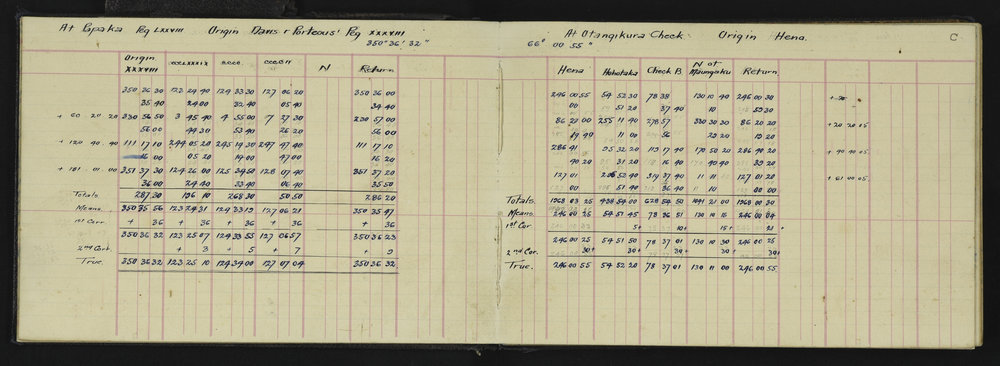 At Papaka Peg LXXVIII Origin Davis & Porteous' Peg XXXVIII
350° 36' 32"
Origin XXXVIII CCLXXXIX CCCC CCCCII N Return
350 36 30 123 24 40 124 33 30 127 06 20 350 36 00
35 40 24 00 32 40 05 40 34 40
+ 60 20 20 330 56 50 3 45 40 4 55 00 7 27 30 230 57 00
56 00 44 30 53 40 26 20 56 00
+ 120 40 40 111 17 10 244 05 20 245 14 30 247 47 40 111 17 10
16 00 05 20 14 00 47 00 16 20
+ 181 01 00 351 37 30 124 26 00 125 34 50 128 07 40 351 37 20
36 00 24 40 33 40 06 40 35 50
Totals 287 30 196 10 268 30 50 50 286 20
Means 350 35 56 123 24 31 124 33 19 127 06 21 350 35 47
1st Cor. + 36 + 36 + 36 + 36 + 36
350 36 32 123 25 07 124 33 55 127 06 57 350 36 23
2nd Cor. + 3 + 5 + 7 + 9
True. 350 36 32 123 25 10 124 34 00 127 07 04 350 36 32
At Otangikura Check Origin Hena. C
66° 00 55"
Hena Hohotaka Check B N of Maungaku Return
246 00 55 54 52 30 78 38 130 10 40 246 00 30
00 51 20 37 40 10 53 30
86 20 00 255 11 40 278 57 330 30 30 86 20 20 + 20 20 05
19 40 11 00 56 19 20
286 41 95 32 20 119 17 40 170 50 20 286 40 20 + 40 40 05
40 20 31 20 16 40 40 40 39 20
127 01 319 37 40 11 11 127 01 20 + 61 00 05
00 51 40 36 40 11 10 00 00
Totals. 1968 03 25 438 54 00 628 54 50 1041 21 00 1968 00 30
Means 246 00 25 54 51 45 78 36 51 130 10 15 246 00 04
1st Cor. 5+ 10+ 15+ 21+
246 00 25 54 51 50 78 37 01 130 10 30 246 00 25
2nd Cor. 30+ 30+ 30+ 30+ 30+
True. 246 00 55 54 52 20 78 37 01 130 11 00 246 00 55